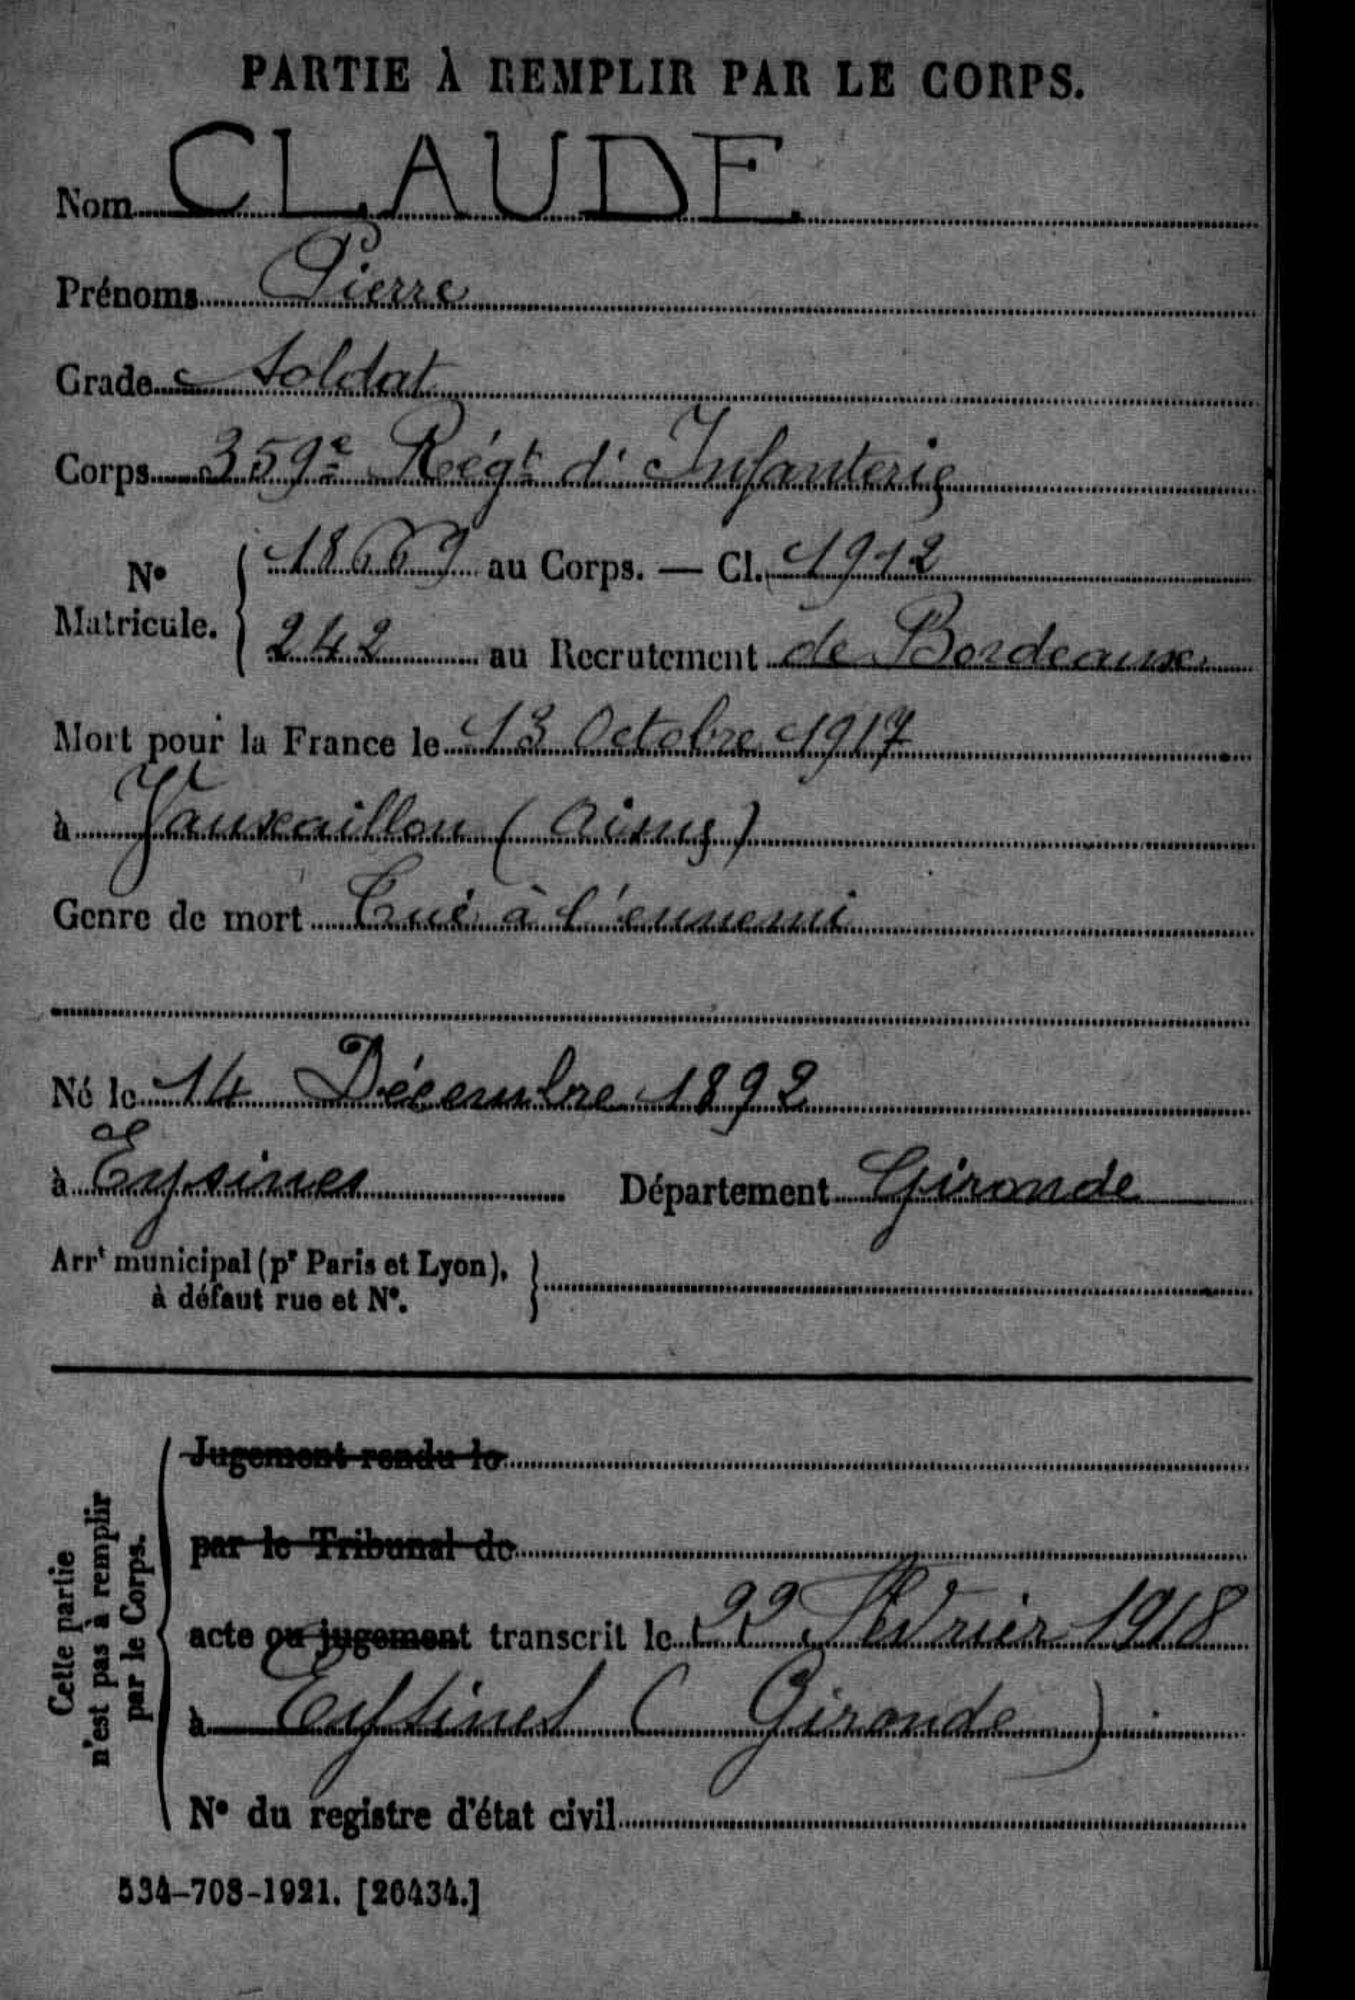 PARTIE À REMPLIR PAR LE CORPS.
Nom CLAUDE.
Prénoms Pierre
Grade Soldat
Corps 359e Régt d'Infanterie
No Matricule. 18669 au Corps. — Cl. 1912
242 au Recrutement de Bordeaux
Mort pour la France le 13 Octobre 1917
à Vauxaillon (Aisne)
Genre de mort Tué à l'ennemi
Né le 14 Décembre 1892
à Eysines Département Gironde
Arrt municipal (pr Paris et Lyon),
à défaut rue et No.
Cette partie
n'est pas à remplir
par le Corps.
Jugement rendu le
par le Tribunal de
acte ou jugement transcrit le 22 Février 1918
à Eysines (Gironde)
No du registre d'état civil
534-708-1921. [26434.]